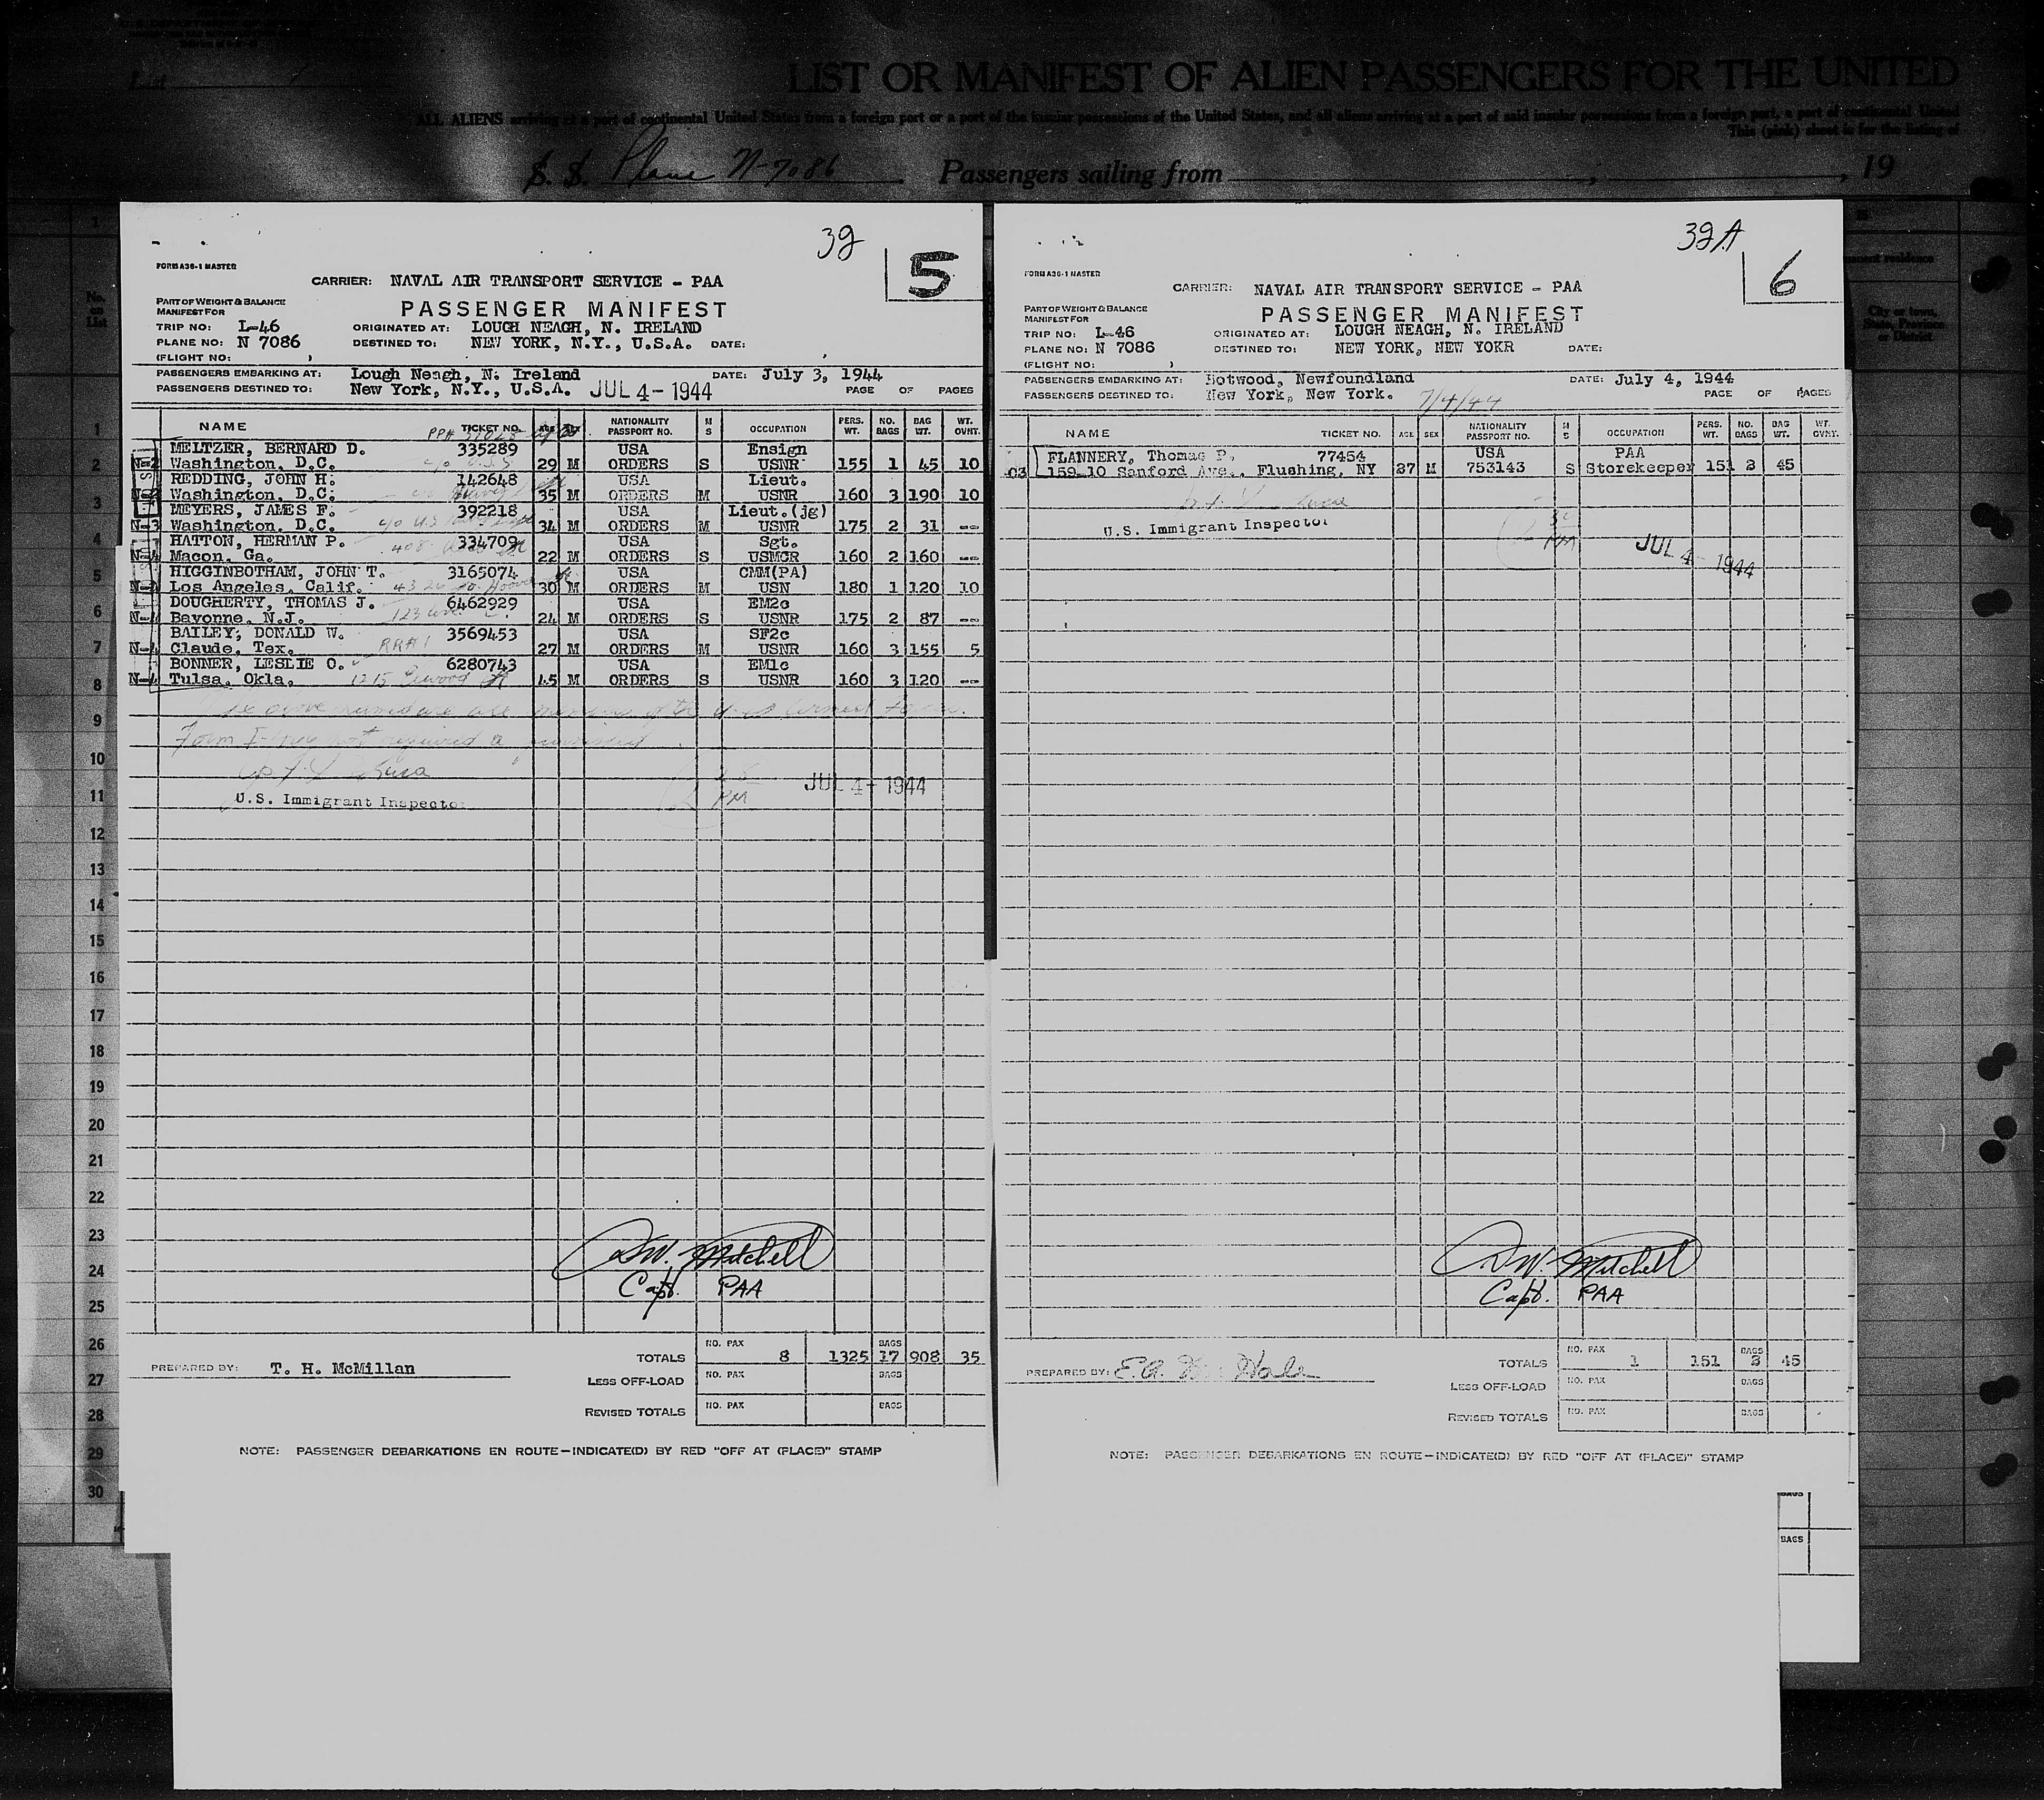 LIST OR MANIFEST OF ALIEN PASSENGERS FOR THE UNITED
ALL ALIENS arriving at a port of continental United States from a foreign port or a port of the insular possessions of the United States, and all aliens arriving at a port of said insular possessions from a foreign port, a port of continental United
This (pink) sheet is for the listing of
List
S. S. Plane N-7086 Passengers sailing from , 19
39
5
FORM A36-1 MASTER
CARRIER: NAVAL AIR TRANSPORT SERVICE - PAA
PART OF WEIGHT & BALANCE
MANIFEST FOR
PASSENGER MANIFEST
TRIP NO: L-46 ORIGINATED AT: LOUGH NEAGH, N. IRELAND
PLANE NO: N 7086 DESTINED TO: NEW YORK, N.Y., U.S.A. DATE:
(FLIGHT NO: )
PASSENGERS EMBARKING AT: Lough Neagh, N. Ireland DATE: July 3, 1944
PASSENGERS DESTINED TO: New York, N.Y., U.S.A. JUL 4 - 1944 PAGE OF PAGES
NAME TICKET NO. AGE SEX NATIONALITY PASSPORT NO. M S OCCUPATION PERS. WT. NO. BAGS BAG WT. WT. OVNT.
MELTZER, BERNARD D. 335289 USA Ensign
N-2 Washington, D.C. 29 M ORDERS S USNR 155 1 45 10
REDDING, JOHN H. 142648 USA Lieut.
Washington, D.C. 35 M ORDERS M USNR 160 3 190 10
MEYERS, JAMES F. 392218 USA Lieut.(jg)
N-3 Washington, D.C. 34 M ORDERS M USNR 175 2 31 --
HATTON, HERMAN P. 334709 USA Sgt.
Macon, Ga. 22 M ORDERS S USMCR 160 2 160 --
HIGGINBOTHAM, JOHN T. 3165074 USA CMM(PA)
Los Angeles, Calif. 30 M ORDERS M USN 180 1 120 10
DOUGHERTY, THOMAS J. 6462929 USA EM2c
N-4 Bayonne, N.J. 24 M ORDERS S USNR 175 2 87 --
BAILEY, DONALD W. 3569453 USA SF2c
N-4 Claude, Tex. RR#1 27 M ORDERS M USNR 160 3 155 5
BONNER, LESLIE O. 6280743 USA EM1c
N-4 Tulsa, Okla. 1215 Elwood 45 M ORDERS S USNR 160 3 120 --
U.S. Immigrant Inspector
JUL 4 - 1944
D.W. Mitchell
Capt. PAA
PREPARED BY: T. H. McMillan
TOTALS NO. PAX 8 1325 BAGS 17 908 35
LESS OFF-LOAD NO. PAX BAGS
REVISED TOTALS NO. PAX BAGS
NOTE: PASSENGER DEBARKATIONS EN ROUTE—INDICATE(D) BY RED "OFF AT (PLACE)" STAMP
39A
6
FORM A36-1 MASTER
CARRIER: NAVAL AIR TRANSPORT SERVICE - PAA
PART OF WEIGHT & BALANCE
MANIFEST FOR
PASSENGER MANIFEST
TRIP NO: L-46 ORIGINATED AT: LOUGH NEAGH, N. IRELAND
PLANE NO: N 7086 DESTINED TO: NEW YORK, NEW YOKR DATE:
(FLIGHT NO: )
PASSENGERS EMBARKING AT: Botwood, Newfoundland DATE: July 4, 1944
PASSENGERS DESTINED TO: New York, New York. 7/4/44 PAGE OF PAGES
NAME TICKET NO. AGE SEX NATIONALITY PASSPORT NO. M S OCCUPATION PERS. WT. NO. BAGS BAG WT. WT. OVNT.
FLANNERY, Thomas P. 77454 USA PAA
159-10 Sanford Ave., Flushing, NY 37 M 753143 S Storekeeper 151 3 45
U.S. Immigrant Inspector
JUL 4 - 1944
D.W. Mitchell
Capt. PAA
PREPARED BY: E.A.
TOTALS NO. PAX 1 151 BAGS 3 45
LESS OFF-LOAD NO. PAX BAGS
REVISED TOTALS NO. PAX BAGS
NOTE: PASSENGER DEBARKATIONS EN ROUTE—INDICATE(D) BY RED "OFF AT (PLACE)" STAMP
1
2
3
4
5
6
7
8
9
10
11
12
13
14
15
16
17
18
19
20
21
22
23
24
25
26
27
28
29
30
BAGS
BAGS